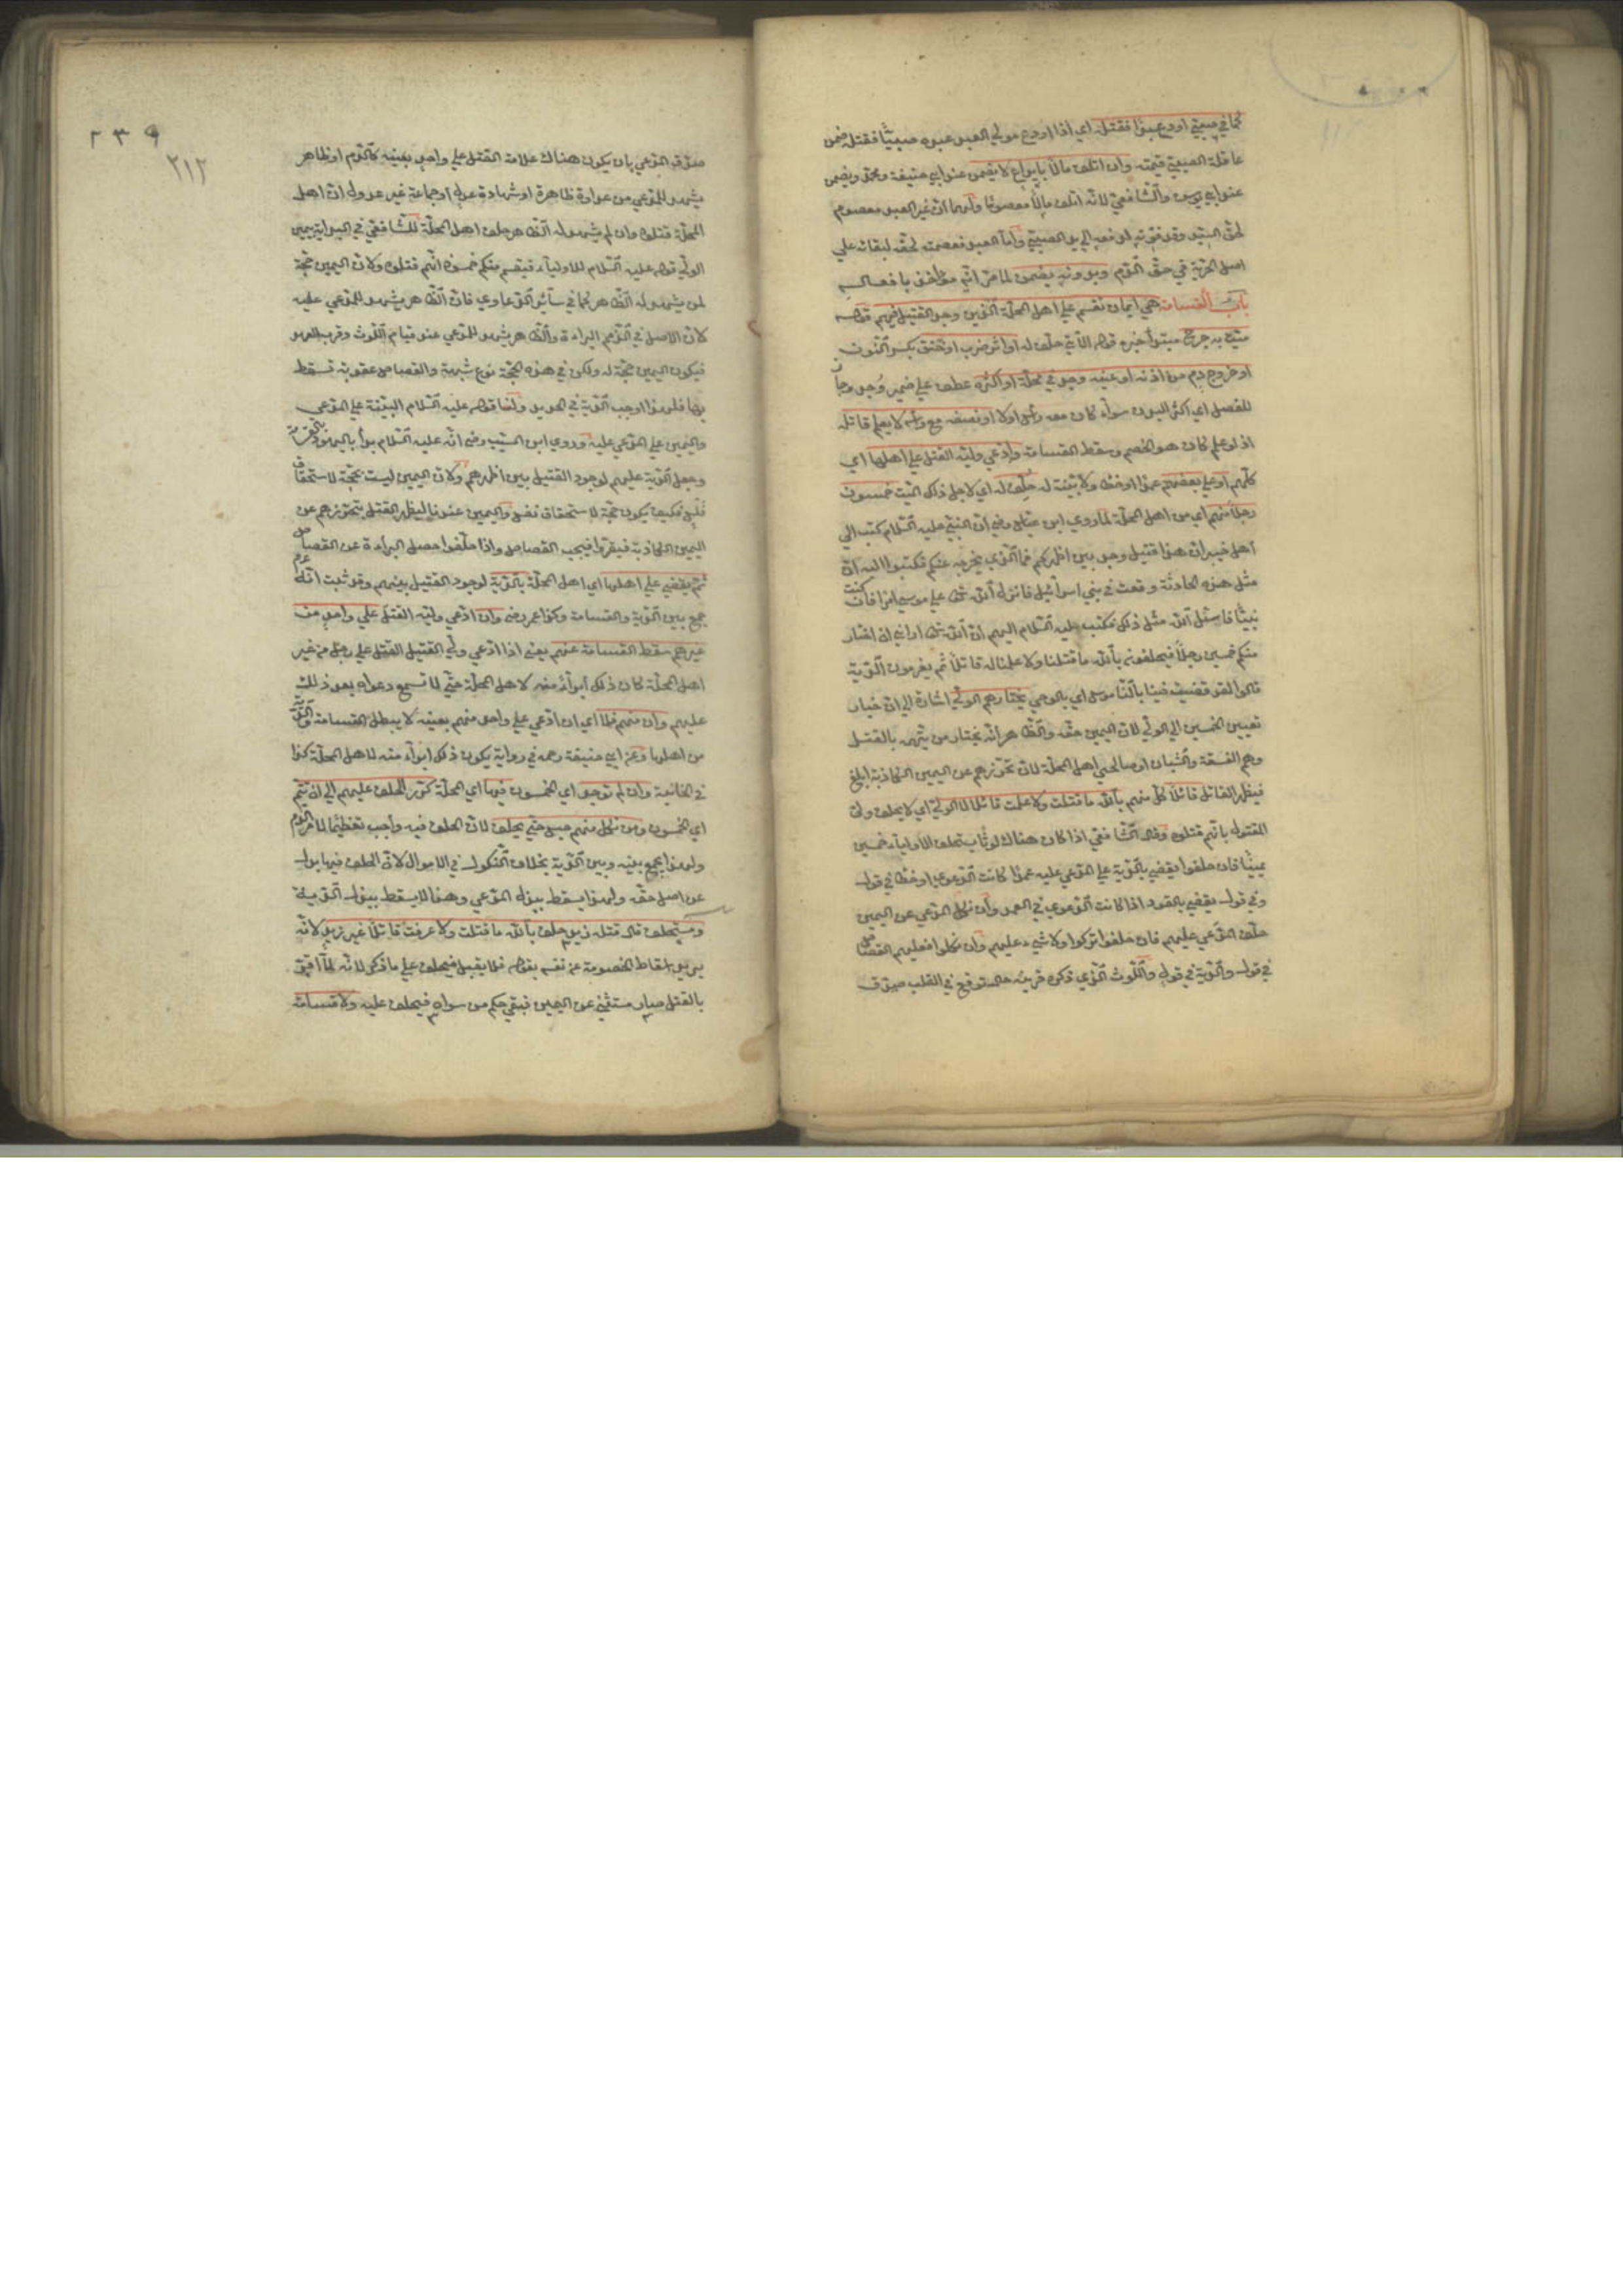 كما في صبي اودع عبدا فقتله اي اذا اودع مولي العبد عبده صبيا فقتله ضمن
عاقلة الصبي قيمته وان اتلف مالا بايداع لا يضمن عند ابي حنيفة ومحمد ويضمن
عند ابي يوسف والشافعي لانه اتلف مالا معصوما ولهما ان غير العبد معصوم
لحق السيد وقد فوته لو نفعه الي يد الصبي واما العبد فعصمته لحقه لبقائه علي
اصل الحرية في حق الدم وبدونه يضمن لما مر انه مؤاخذ بافعاله
باب القسامة هي ايمان تقسم علي اهل المحلة الذين وجد القتيل فيهم قوله
ميت به جرح مبتدأ خبره قوله الآتي حلف له او اثر ضرب او خنق بكسر النون
او خروج دم من اذنه او عينه وجد في محلة او اكثره عطف علي ضمير وجد وجاز
للفصل اي اكثر البدن سواء كان معه رأس اولا او نصفه مع رأسه لا يعلم قاتله
اذ لو علم كان هو الخصم وسقط القسامة وادعي وليه القتل علي اهلها اي
كلهم او علي بعضهم عمدا او خطأ ولا بينة له حلف له اي لاجل ذلك الميت خمسون
رجلا منهم اي من اهل المحلة لما روي ابن عباس رضي ان النبي عليه السلام كتب الي
اهل خيبر ان هذا قتيل وجد بين اظهركم فما الذي يخرجه عنكم فكتبوا اليه ان
مثل هذه الحادثة وقعت في بني اسرائيل فانزل الله تعالى علي موسي امرا فان كنت
نبيا فاسئل الله مثل ذلك فكتب عليه السلام اليهم ان الله تعالى اراني ان اختار
منكم خمسين رجلا فيحلفون بالله ما قتلنا ولا علمنا له قاتلا ثم يغرمون الدية
قالوا لقد قضيت فينا بالناموس اي بالوحي يختارهم الولي اشارة الي ان خيار
تعيين الخمسين الي الولي لان اليمين حقه والظاهر انه يختار من يتهمه بالقتل
وهم الفسقة والشبان او صالحي اهل المحلة لان تحرزهم عن اليمين الكاذبة ابلغ
فيظهر القاتل قائلا كل منهم بالله ما قتلت ولا علمت قاتلا لا الولي اي لا يحلف ولي
المقتول بانهم قتلوه وقال الشافعي اذا كان هناك لوث استحلف الاولياء خمسين
يمينا فان حلفوا يقضي بالدية علي المدعي عليه عمدا كانت الدعوي او خطأ في قول
وفي قول يقضي بالقود اذا كانت الدعوي في العمد وان نكل المدعي عن اليمين
حلف المدعي عليهم فان حلفوا تركوا ولا شيء عليهم وان نكلوا فعليهم القصاص
في قول والدية في قول واللوث الذي ذكره قرينة حال توقع في القلب صدق
صدق المدعي بان يكون هناك علامة القتل علي واحد بعينه كالدم او ظاهر
يشهد للمدعي من عداوة ظاهرة او شهادة عدل او جماعة غير عدول ان اهل
المحلة قتلوه وان لم يشهد له الظاهر حلف اهل المحلة للشافعي في البداية بيمين
الولي قوله عليه السلام للاولياء فيقسم منكم خمسون انهم قتلوه ولان اليمين حجة
لمن يشهد له الظاهر كما في سائر الدعاوي فان الظاهر يشهد للمدعي عليه
لان الاصل في الذمم البراءة والظاهر يشهد للمدعي عند قيام اللوث وقرب العهد
فيكون اليمين حجة له ولكن في هذه الحجة نوع شبهة والقصاص عقوبة تسقط
بها فلهذا اوجب الدية في الجديد ولنا قوله عليه السلام البينة علي المدعي
واليمين علي المدعي عليه وروي ابن المسيب رضي انه عليه السلام بدأ باليهود بالقسامة
وجعل الدية عليهم لوجود القتيل بين اظهرهم ولان اليمين ليست بحجة للاستحقاق
فكيف يكون حجة لاستحقاق نفس واليمين عندنا ليظهر القتل بتحرزهم عن
اليمين الكاذبة فيقروا فيجب القصاص واذا حلفوا حصل البراءة عن القصاص
ثم يقضي علي اهلها اي اهل المحلة بالدية لوجود القتيل بينهم وقد ثبت انه عم
جمع بين الدية والقسامة وكذا عمر رضي وان ادعي وليه القتل علي واحد من
غيرهم سقط القسامة عنهم يعني اذا ادعي ولي القتيل القتل علي رجل من غير
اهل المحلة كان ذلك ابراء منه لاهل المحلة حتي لا تسمع دعواه بعد ذلك
عليهم وان منهم فلا اي ان ادعي علي واحد منهم بعينه لا يبطل القسامة والدية
من اهلها وعن ابي حنيفة رحمه في رواية يكون ذلك ابراء منه لاهل المحلة كذا
في الخانية وان لم توجد اي الخمسون فيها اي المحلة كرر الحلف عليهم الي ان يتم
اي الخمسون ومن نكل منهم حبس حتي يحلف لان الحلف فيه واجب تعظيما لامر الدم
ولهذا يجمع بينه وبين الدية بخلاف النكول في الاموال لان الحلف فيها بدل
عن اصل حقه ولهذا يسقط ببذل المدعي وهنا لا يسقط ببذل الدية
ومستحلف قال قتله زيد حلف بالله ما قتلت ولا عرفت قاتلا غير زيد لانه
يريد اسقاط الخصومة عن نفسه بقوله فلا يقبل فيحلف علي ما ذكر لانه لما اقر
بالقتل صار مستثني عن اليمين فبقي حكم من سواه فيحلف عليه ولا قسامة
٢٣٩
٢١٢